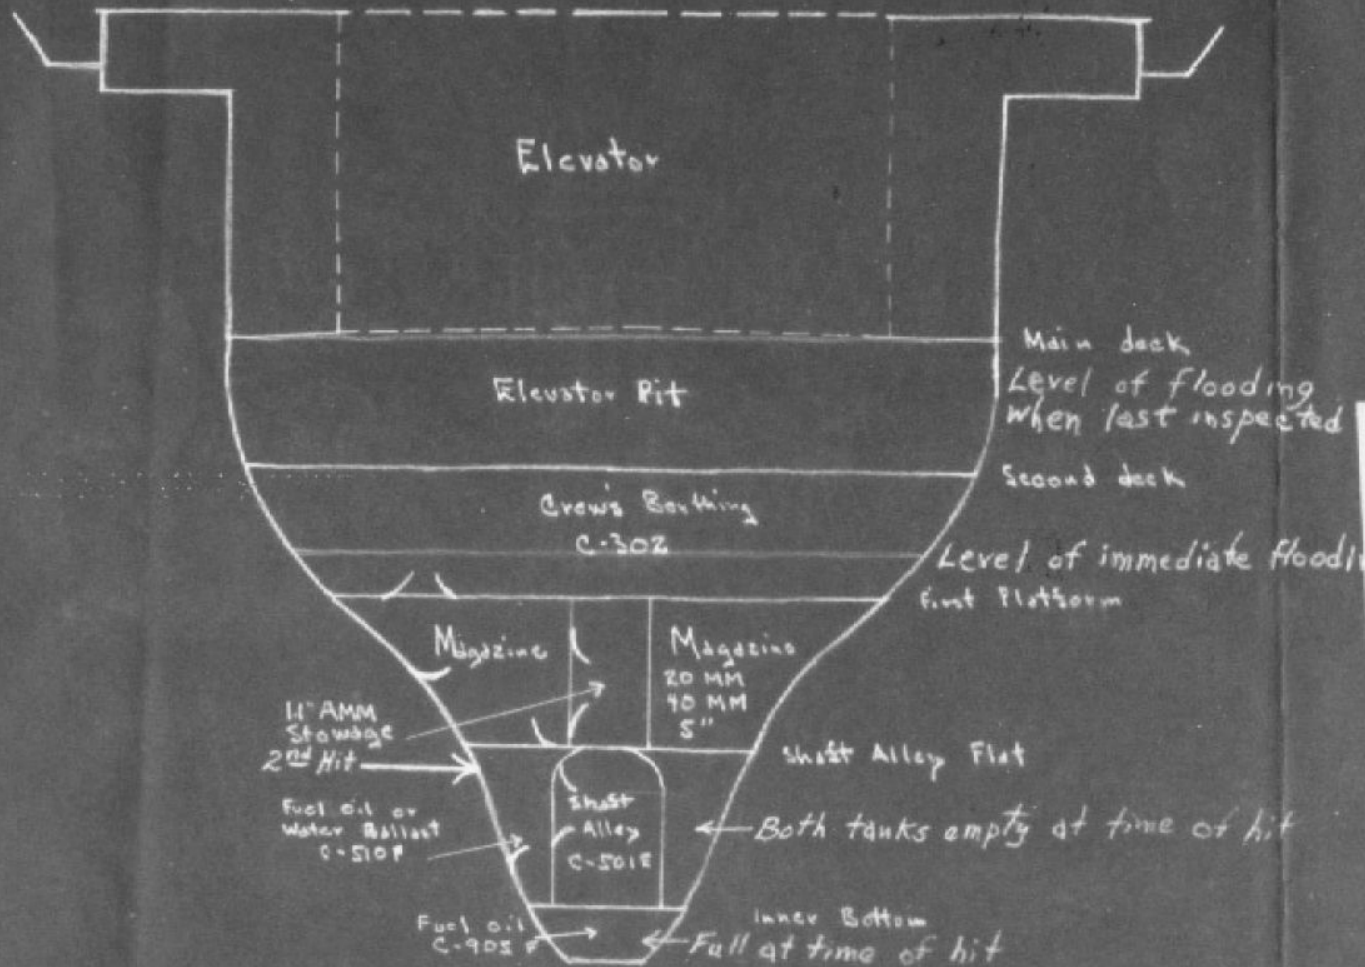 Elevator
Main deck
Elevator Pit
Level of flooding
when last inspected
Second deck
Crew's Berthing
C-302
Level of immediate floodi
First Platform
Magazine
Magazine
20 MM
40 MM
5"
1.1" AMM
Stowage
2nd Hit
Shaft Alley Flat
Fuel oil or
Water Ballast
C-510F
Shaft
Alley
C-501E
Both tanks empty at time of hit
Inner Bottom
Fuel oil
C-905 F
Full at time of hit